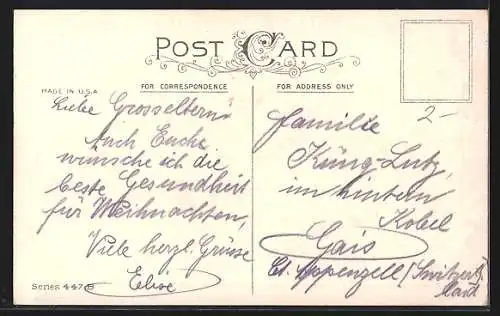 POST CARD
MADE IN U.S.A.
FOR CORRESPONDENCE
Liebe Grosseltern!
Auch Euche
wünsche ich die
beste Gesundheit
für Weihnachten,
Viele herzl. Grüsse
Elise
Series 447 B
FOR ADDRESS ONLY
2-
Familie
Küng-Lutz,
im hintern
Kobel
Gais
Ct. Appenzell / Switzer
land